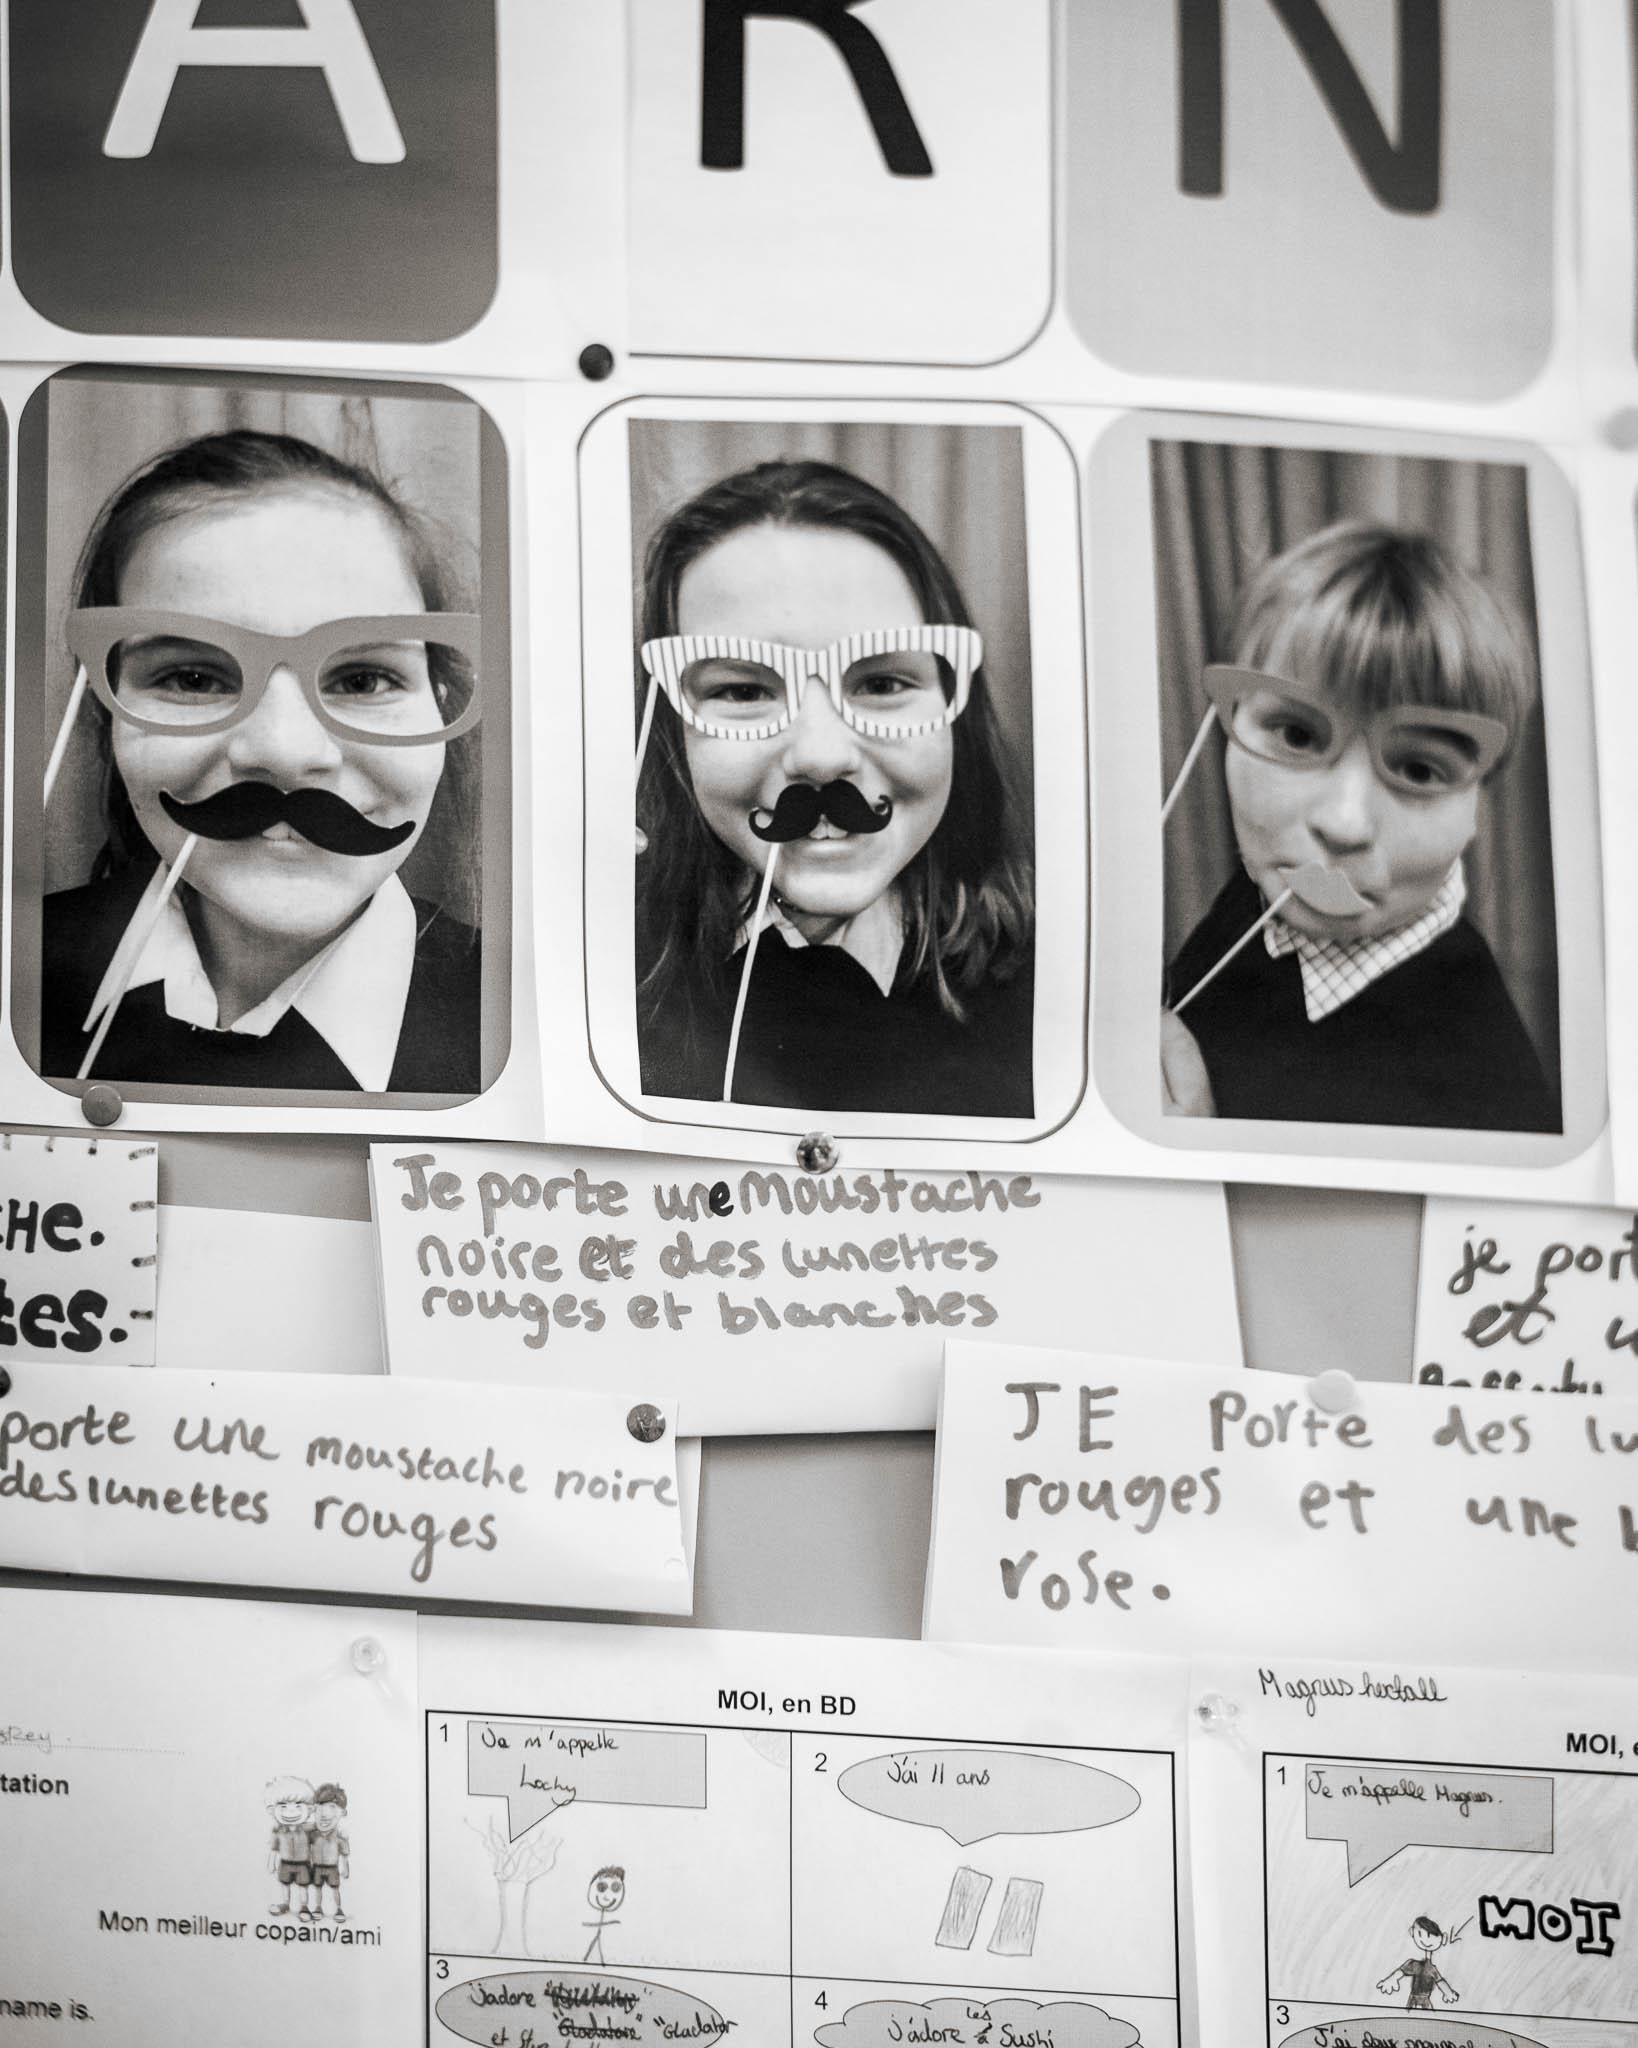 ARN
CHE.
tes.
Je porte une moustache
noire et des lunettes
rouges et blanches
je port
et u
porte une moustache noire
des lunettes rouges
JE Porte des lu
rouges et une b
rose.
MOI, en BD
1
Je m'appelle
Lochy
2
j'ai 11 ans
3
j'adore
"Gladiator
et
4
j'adore les Sushi
Magnus
MOI, e
1
Je m'appelle Magnus.
MOI
3
J'ai
skey
tation
Mon meilleur copain/ami
name is.